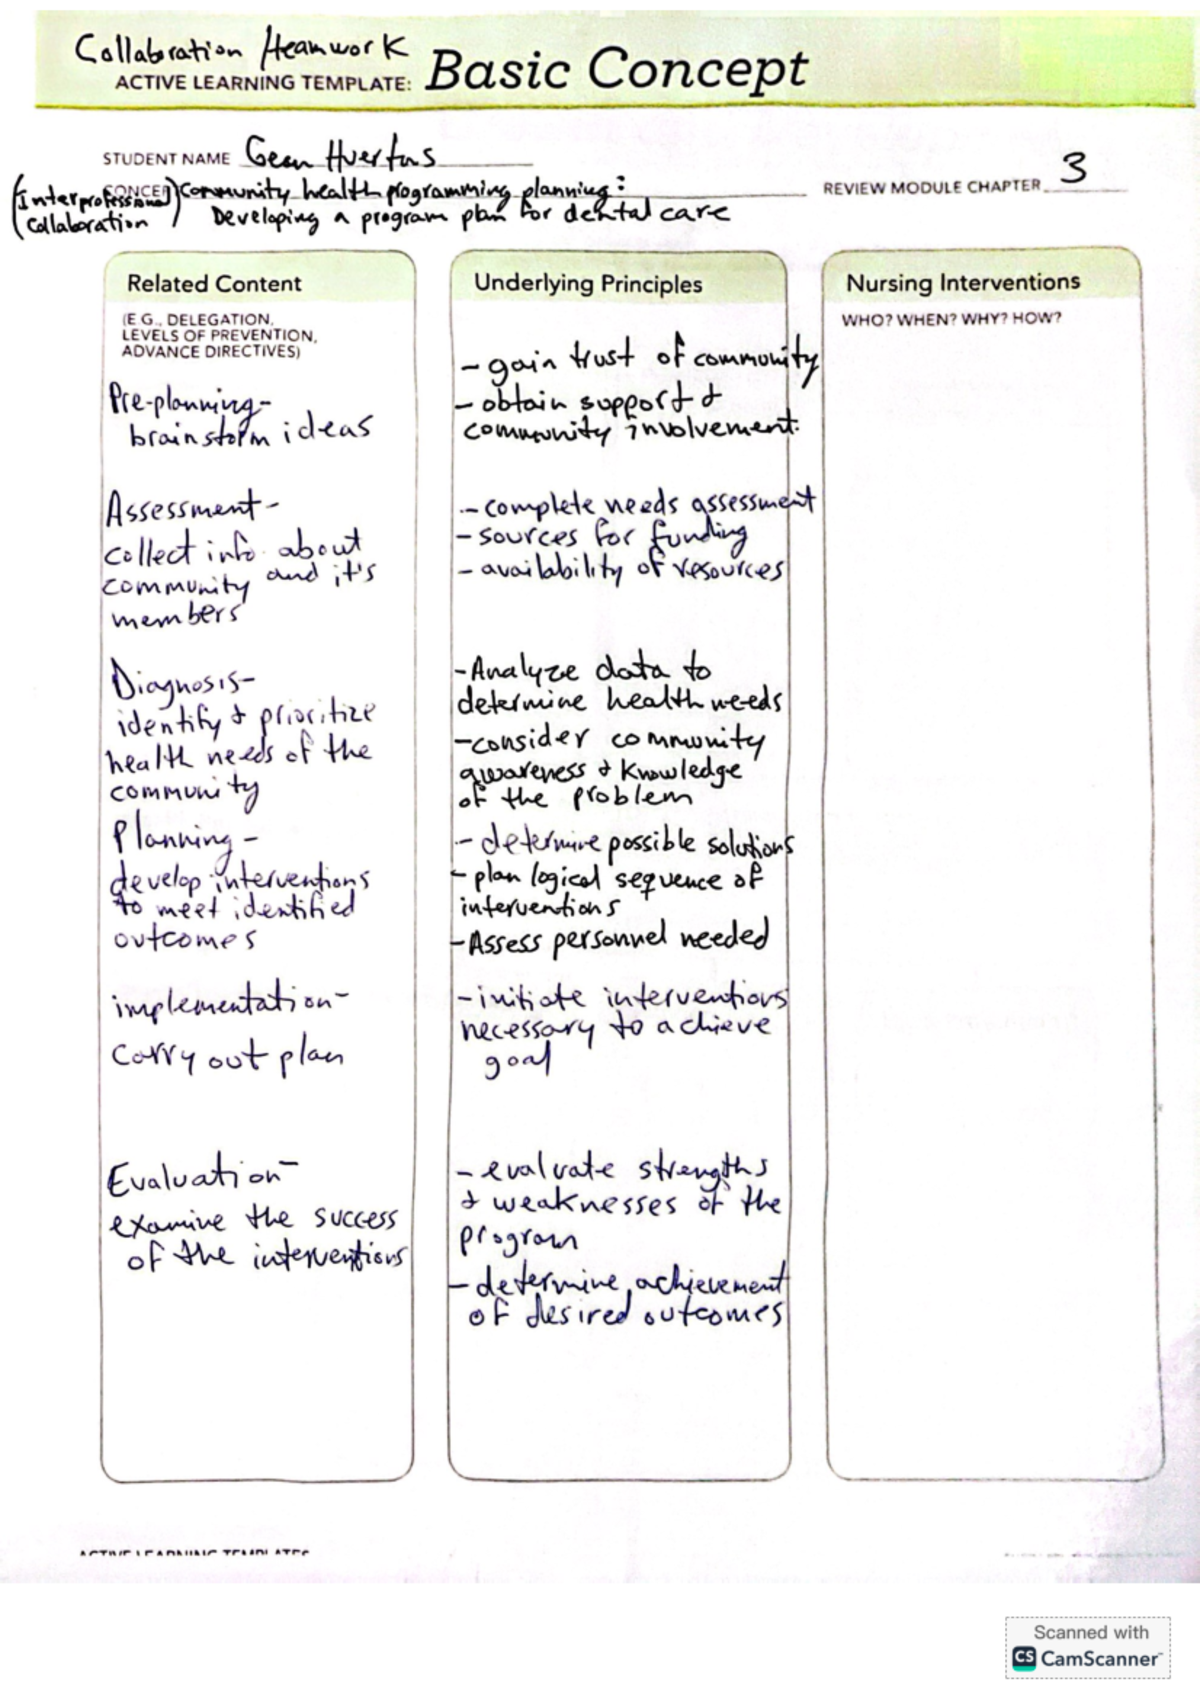 Collaboration /teamwork
ACTIVE LEARNING TEMPLATE: Basic Concept
STUDENT NAME Gean Huertas
REVIEW MODULE CHAPTER 3
(Interprofessional collaboration) CONCEPT Community health programming planning:
Developing a program plan for dental care
Related Content
(E.G., DELEGATION,
LEVELS OF PREVENTION,
ADVANCE DIRECTIVES)
Pre-planning-
brainstorm ideas
Assessment-
collect info about
community and it's
members
Diagnosis-
identify & prioritize
health needs of the
community
Planning-
develop interventions
to meet identified
outcomes
implementation-
carry out plan
Evaluation-
examine the success
of the interventions
Underlying Principles
- gain trust of community
- obtain support &
community involvement.
- complete needs assessment
- sources for funding
- availability of resources
-Analyze data to
determine health needs
-consider community
awareness & knowledge
of the problem
- determine possible solutions
- plan logical sequence of
interventions
-Assess personnel needed
-initiate interventions
necessary to achieve
goal
- evaluate strengths
& weaknesses of the
program
- determine achievement
of desired outcomes
Nursing Interventions
WHO? WHEN? WHY? HOW?
ACTIVE LEARNING TEMPLATES
Scanned with
CS CamScanner